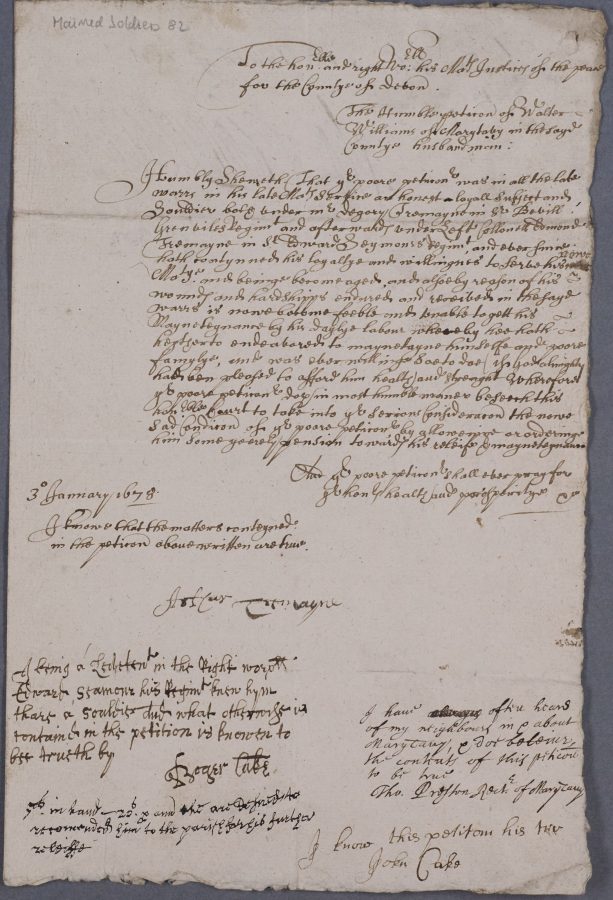 Maimed Soldiers 82
To the hon:ble and right Wo:ll his Ma:ts Justices of the peace
for the Countye of Devon.
The Humble peticon of Walter
Williams of Marytavy in the sayd
Countye husbandman:
Humbly Sheweth That yr poore peticonr was in all the late
warrs in his late Mats Service an honest & loyall Subject and
Souldier both under mr Degory Tremayne in Sr Bevill
Grenviles Regimt and afterwards under Left Collonell Edmond
Tremayne in Sr Edward Seymors Regimt and ever since
hath contynued his loyallye and willingnes to serve his nowe
Matye. and beinge become aged and alsoe by reason of his
wounds and hardshipps endured and received in the sayd
warrs is nowe become feeble and unable to gett his
Mayneteynance by his daylye labour whereby hee hath
heretherto endeavored to maynetayne himselfe and poore
famylye, and was ever willinge soe to doe if god almighty
had ben pleased to afford him health and strenght Wherefore
yr poore peticonr doth in most humble maner beseech this
honble Court to take into yr serious Consideracon the nowe
sad condicon of yr poore peticonr by alloweinge or orderinge
him some yeerely pension towards his releife & mayneteynance
And yr poore peticonr shall ever pray for
yr honrs health and prosperitye &c
3o January 1678
I knowe that the matters conteyned
in the peticon above written are true.
Arthur Tremayne
I being a Leuetent in the Right worpll
Edward Seamour his Regimt knew hym
thare a souldier and what otherwise is
containd in the petition is knowen to
bee trueth by
Roger Cake
I have often heard
of my neighbours in & about
MaryTavy, & doe beleive
the contents of this peticon
to be true
Tho. Preston Rectr of MaryTavy
in hand & and the are desired to
recomended him to the parish for his further
releiffe
I know this petitom his tru
John Cake